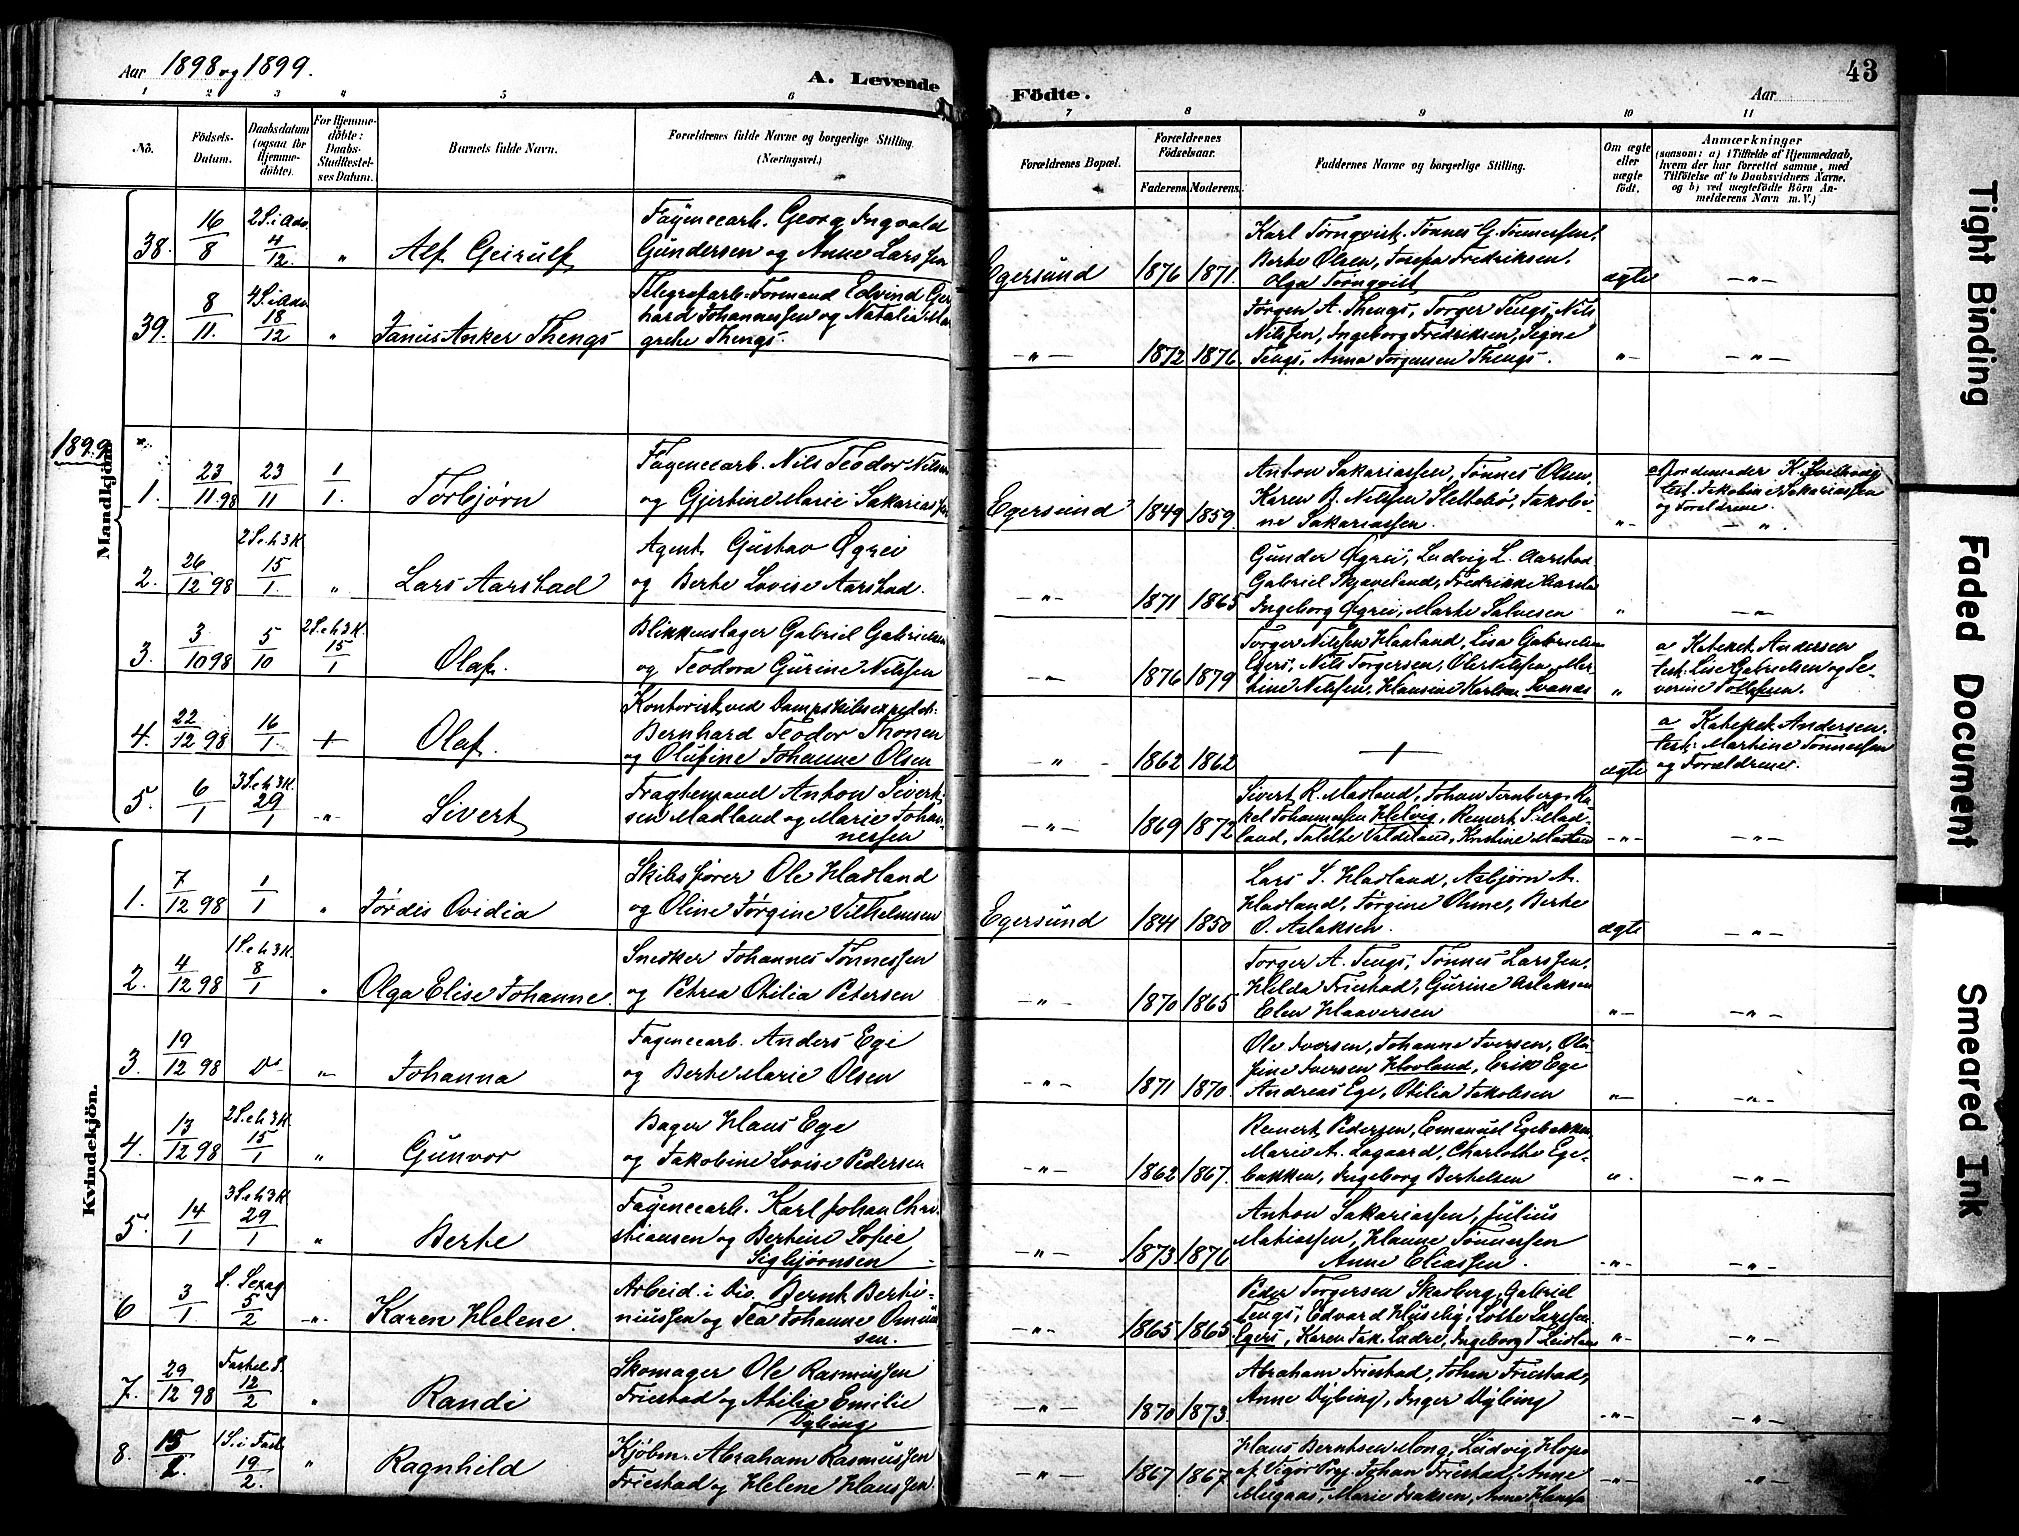 Aar 1898 og 1899.
A. Levende
Födte.
Aar
43
1 2 3 4 5 6 7 8 9 10 11
No.
Födsels-
Datum.
Daabsdatum
(ogsaa for
Hjemme-
döbte).
For Hjemme-
döbte:
Daabs-
Stadfæstel-
ses Datum.
Barnets fulde Navn.
Forældrenes fulde Navne og borgerlige Stilling.
(Næringsvei.)
Forældrenes Bopæl.
Forældrenes
Födselsaar.
Faderens.
Moderens.
Faddernes Navne og borgerlige Stilling.
Om ægte
eller
uægte
födt.
Anmærkninger
(saasom: a) i Tilfælde af Hjemmedaab,
hvem der har forrettet samme, med
Tilföielse af to Daabsvidners Navne.
og b) ved uegtefödte Börn An-
melderens Navn m. V.)
38. 16/8 2 S. i Adv. 4/12. " Alf Geirulf
Fayencearb. Georg Ingvald
Gundersen og Anne Larssen
Egersund 1876 1871.
Karl Törnqvist, Tönnes G. Tönnessen,
Berte Olsen, Josefa Fredriksen,
Olga Törnqvist
ægte -"-
39. 8/11. 4 S. i Adv. 18/12 " Janus Anker Thengs
Telegrafarb. Formand Edvind Ger
hard Johannessen og Natalia Mar
grete Thengs.
-"- 1872 1876.
Jörgen A. Thengs, Torger Tengs, Nils
Nilssen, Ingeborg Fredriksen, Signe
Tengs, Anna Jörgensen Thengs.
"- -"-
1899
Mandkjön
1. 23/11 98 23/11 1/1. Torbjörn
Fayencearb. Nils Teodor Nilsen
og Gjertine Marie Sakariassen
Egersund 1849 1859.
Anton Sakariassen, Tönnes Olsen,
Karen B. Nilssen Slettebö, Jakobi-
ne Sakariassen.
"-
a Jordemoder K.
test. Jakobine Sakariassen
og Forældrene.
-"-
2. 26/12 98 2 S. e. h. 3 K. 15/1. " Lars Aarstad
Agent Gustav Øgrei
og Berte Lovise Aarstad.
-"- 1871 1865
Gunder Øgrei, Ludvig L. Aarstad
Gabriel Skjæveland, Fredrikke Aarstad
Ingeborg Øgrei, Marte Salvesen
" -"-
3. 3/10 98 5/10 2 S. e. h. 3 K. 15/1 Olaf.
Blikkenslager Gabriel Gabrielsen
og Teodora Gurine Nilssen
-"- 1876 1879
Torger Nilssen Haaland, Lisa Gabrielsen
Egers, Nils Torgersen, Ole Nilssen, Mar-
tine Nilssen, Hansine Karlsen Svanæs
"
a Kateket Andersen
test. Lise Gabrielsen og Se-
verine Tollefsen.
4. 22/12 98 16/1. + Olaf.
Kontorist ved Dampskibsexpedit:
Bernhard Teodor Thonen
og Olufine Johanne Olsen
" 1862 1862
+
ægte
a Kateket Andersen.
test: Martine Tönnessen
og Forældrene.
5. 6/1 3 S. e. h. 3 K. 29/1 -"- Sivert
Fragtemand Anton Sivert-
sen Madland og Marie Johan-
nessen
-"- 1869 1872
Sivert R. Madland, Johan Fernberg, Ra-
kel Johannessen Helvig, Reinert S. Mad-
land, Talette Vatsland, Kristine Madland
-"- -"-
Kvindekjön.
1. 7/12 98 1/1 " Jördis Ovidia
Skibsförer Ole Hadland
og Oline Jörgine Vilhelmsen
Egersund 1841 1850
Lars S. Hadland, Asbjörn A.
Hadland, Jörgine Ohme, Berte
O. Aslaksen.
ægte -"-
2. 4/12 98 1 S. e. h. 3 K. 8/1 " Olga Elise Johanne.
Snedker Johannes Tönnessen
og Petrea Otilia Petersen
-"- 1870 1865
Torger A. Tengs, Tönnes Larssen,
Helda Friestad, Gurine Aslaksen
Elen Haaversen
"- -"-
3. 19/12 98 Do -"- Johanna
Fayencearb. Anders Ege
og Berte Marie Olsen
-"- 1871 1870.
Ole Iversen, Johanne Iversen, Olu-
fine Iversen Hovland, Erik Ege
Andreas Ege, Otilia Jakobsen
"- -"-
4. 13/12 98 2 S. e. h. 3 K. 15/1 " Gunvor
Bager Hans Ege
og Jakobine Lovise Pedersen
-"- 1862 1867.
Reinert Pedersen, Emanuel Egebakken,
Marie A. Lagaard, Charlotte Ege-
bakken, Ingeborg Bertelsen
". -"-
5. 14/1 3 S. e. h. 3 K. 29/1 " Berte
Fayencearb. Karl Johan Chri-
stiansen og Bertine Sofie
Sigbjörnsen
-"- 1873 1876
Anton Sakariassen, Julius
Matiassen, Hanne Tönnessen
Anne Eliassen.
-"- -"-
6 3/1. S. Sexag. 5/2 -"- Karen Helene.
Arbeid. i Div. Bernt Berti-
niussen og Tea Johanne Omund-
sen.
-"- 1865 1865
Peder Torgersen Skadberg, Gabriel
Tengs, Edvard Husebö, Lotte Larssen
Egers, Karen Jak. Lædre, Ingeborg T Leidland
"- -"-
7. 29/12 98 Fastel. S. 12/2 " Randi
Skomager Ole Rasmussen
Friestad og Atilia Emilie
Dybing
-"- 1870 1873
Abraham Friestad, Johan Friestad,
Anne Dybing, Inger Dybing
-"- -"-
8. 15/1. 1 S. i Fast. 19/2. " Ragnhild
Kjöbm. Abraham Rasmussen
Friestad og Helene Hanssen.
-"- 1867 1867
Hans Berntsen Mong, Ludvig Hope
Johan Friestad, Anne
Marie Isaksen, Anne Hanssen
-"- -"-
Tight Binding
Faded Document
Smeared Ink